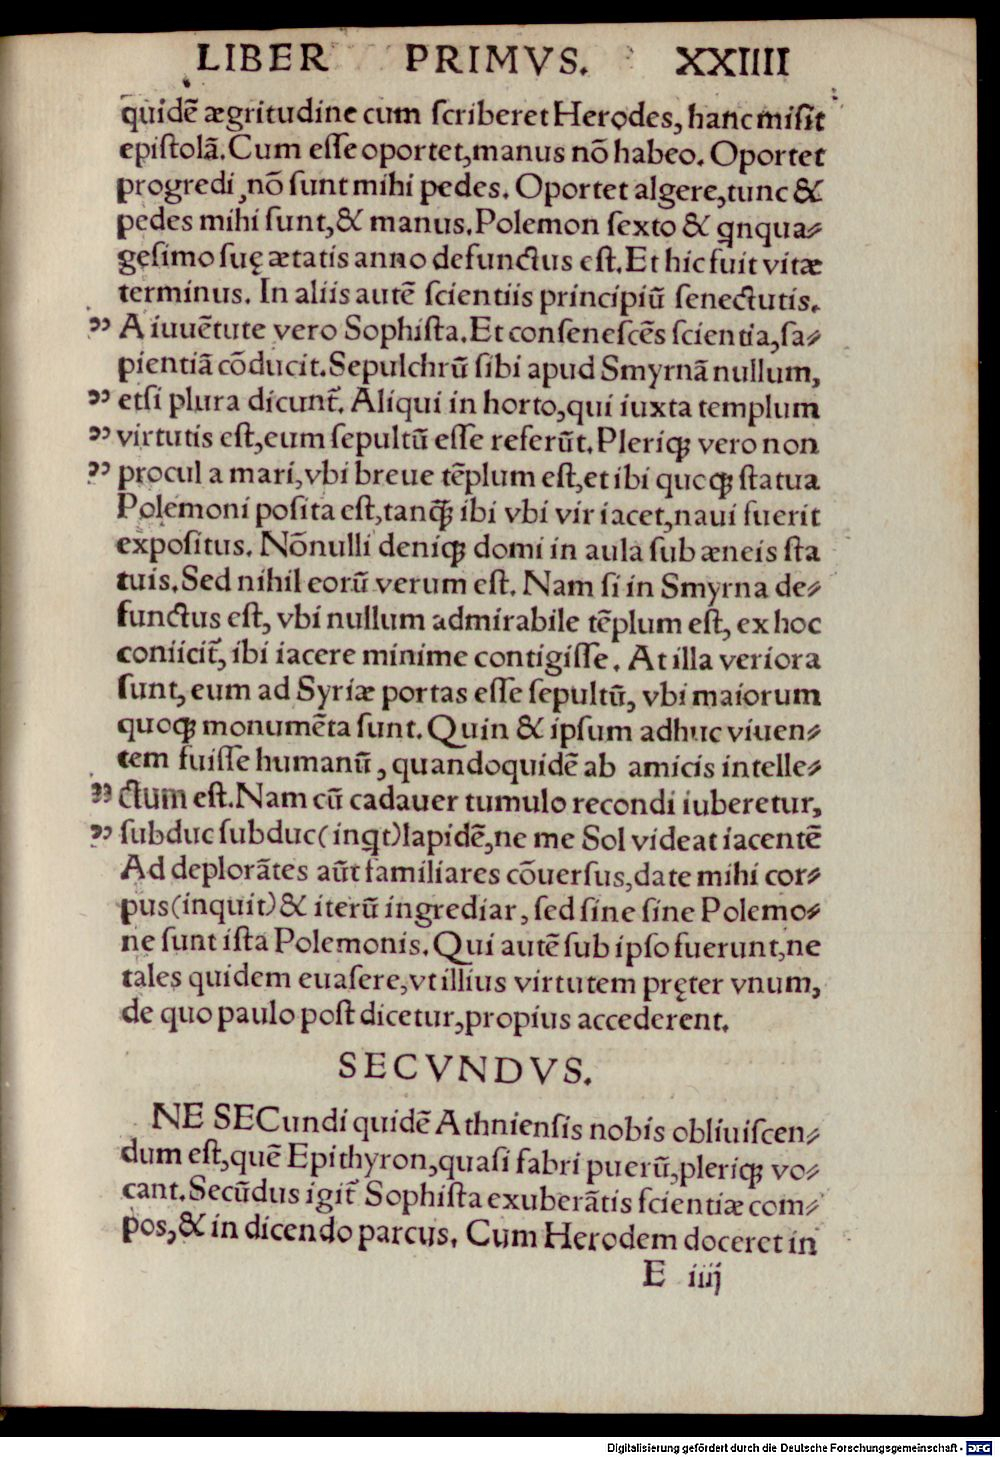 LIBER PRIMVS. XXIIII
quidē ægritudine cum ſcriberet Herodes, hanc miſit
epiſtolā. Cum eſſe oportet, manus nō habeo. Oportet
progredi, nō ſunt mihi pedes. Oportet algere, tunc &
pedes mihi ſunt, & manus. Polemon ſexto & qnqua⸗
geſimo ſuę ætatis anno defunctus eſt. Et hic fuit vitæ
terminus. In aliis autē ſcientiis principiū ſenectutis.
,, A iuuētute vero Sophiſta. Et conſeneſcēs ſcientia, ſa⸗
pientiā cōducit. Sepulchrū ſibi apud Smyrnā nullum,
,, etſi plura dicunt̃. Aliqui in horto, qui iuxta templum
,, virtutis eſt, eum ſepultū eſſe referūt. Pleriqꝫ vero non
,, procul a mari, vbi breue tēplum eſt, et ibi quoqꝫ ſtatua
Polemoni poſita eſt, tanqꝫ̃ ibi vbi vir iacet, naui fuerit
expoſitus. Nōnulli deniqꝫ domi in aula ſub æneis ſta
tuis. Sed nihil eorū verum eſt. Nam ſi in Smyrna de⸗
functus eſt, vbi nullum admirabile tēplum eſt, ex hoc
coniicit̃, ibi iacere minime contigiſſe. At illa veriora
ſunt, eum ad Syriæ portas eſſe ſepultū, vbi maiorum
quoqꝫ monumēta ſunt. Quin & ipſum adhuc viuen⸗
tem fuiſſe humanū, quandoquidē ab amicis intelle⸗
,, ctum eſt. Nam cū cadauer tumulo recondi iuberetur,
,, ſubduc ſubduc (inqt) lapidē, ne me Sol videat iacentē
Ad deplorātes aūt familiares cōuerſus, date mihi cor⸗
pus (inquit) & iterū ingrediar, ſed ſine ſine Polemo⸗
ne ſunt iſta Polemonis. Qui autē ſub ipſo fuerunt, ne
tales quidem euaſere, vt illius virtutem pręter vnum,
de quo paulo poſt dicetur, propius accederent.
SECVNDVS.
NE SECundi quidē Athnienſis nobis obliuiſcen⸗
dum eſt, quē Epithyron, quaſi fabri puerū, pleriqꝫ vo⸗
cant. Secūdus igit̃ Sophiſta exuberātis ſcientiæ com⸗
pos, & in dicendo parcus. Cum Herodem doceret in
E iiij
Digitalisierung gefördert durch die Deutsche Forschungsgemeinschaft - DFG